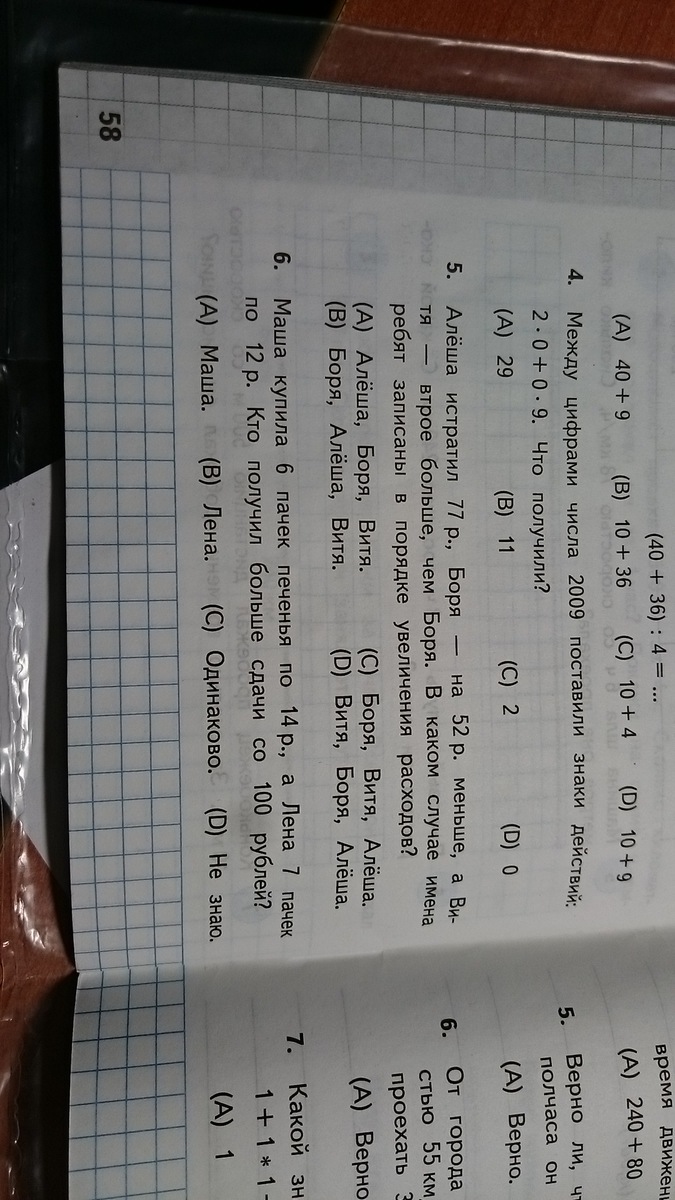 (40 + 36) : 4 = ...
(A) 40 + 9 (B) 10 + 36 (C) 10 + 4 (D) 10 + 9
4. Между цифрами числа 2009 поставили знаки действий:
2 · 0 + 0 · 9. Что получили?
(A) 29 (B) 11 (C) 2 (D) 0
5. Алёша истратил 77 р., Боря — на 52 р. меньше, а Ви-
тя — втрое больше, чем Боря. В каком случае имена
ребят записаны в порядке увеличения расходов?
(A) Алёша, Боря, Витя. (C) Боря, Витя, Алёша.
(B) Боря, Алёша, Витя. (D) Витя, Боря, Алёша.
6. Маша купила 6 пачек печенья по 14 р., а Лена 7 пачек
по 12 р. Кто получил больше сдачи со 100 рублей?
(A) Маша. (B) Лена. (C) Одинаково. (D) Не знаю.
58
время движен
(A) 240 + 80
5. Верно ли, ч
полчаса он
(A) Верно.
6. От города
стью 55 км
проехать
(A) Верно
7. Какой зн
1 + 1 * 1
(A) 1